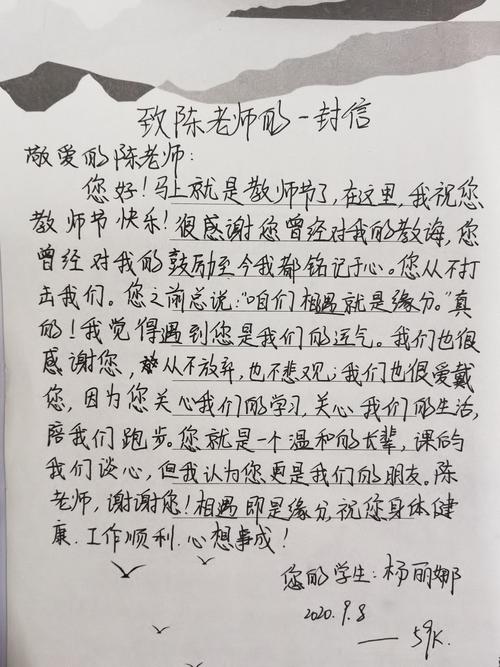 致陈老师的一封信
敬爱的陈老师：
您好！马上就是教师节了，在这里，我祝您
教师节快乐！很感谢您曾经对我的教诲，您
曾经对我的鼓励至今我都铭记于心。您从不打
击我们。您之前总说：“咱们相遇就是缘分。”真
的！我觉得遇到您是我们的运气。我们也很
感谢您，从不放弃，也不悲观；我们也很爱戴
您，因为您关心我们的学习，关心我们的生活，
陪我们跑步。您就是一个温和的长辈，课后的
我们谈心，但我认为您更是我们的朋友。陈
老师，谢谢您！相遇即是缘分，祝您身体健
康．工作顺利．心想事成！
您的学生：杨丽娜
2020.9.8